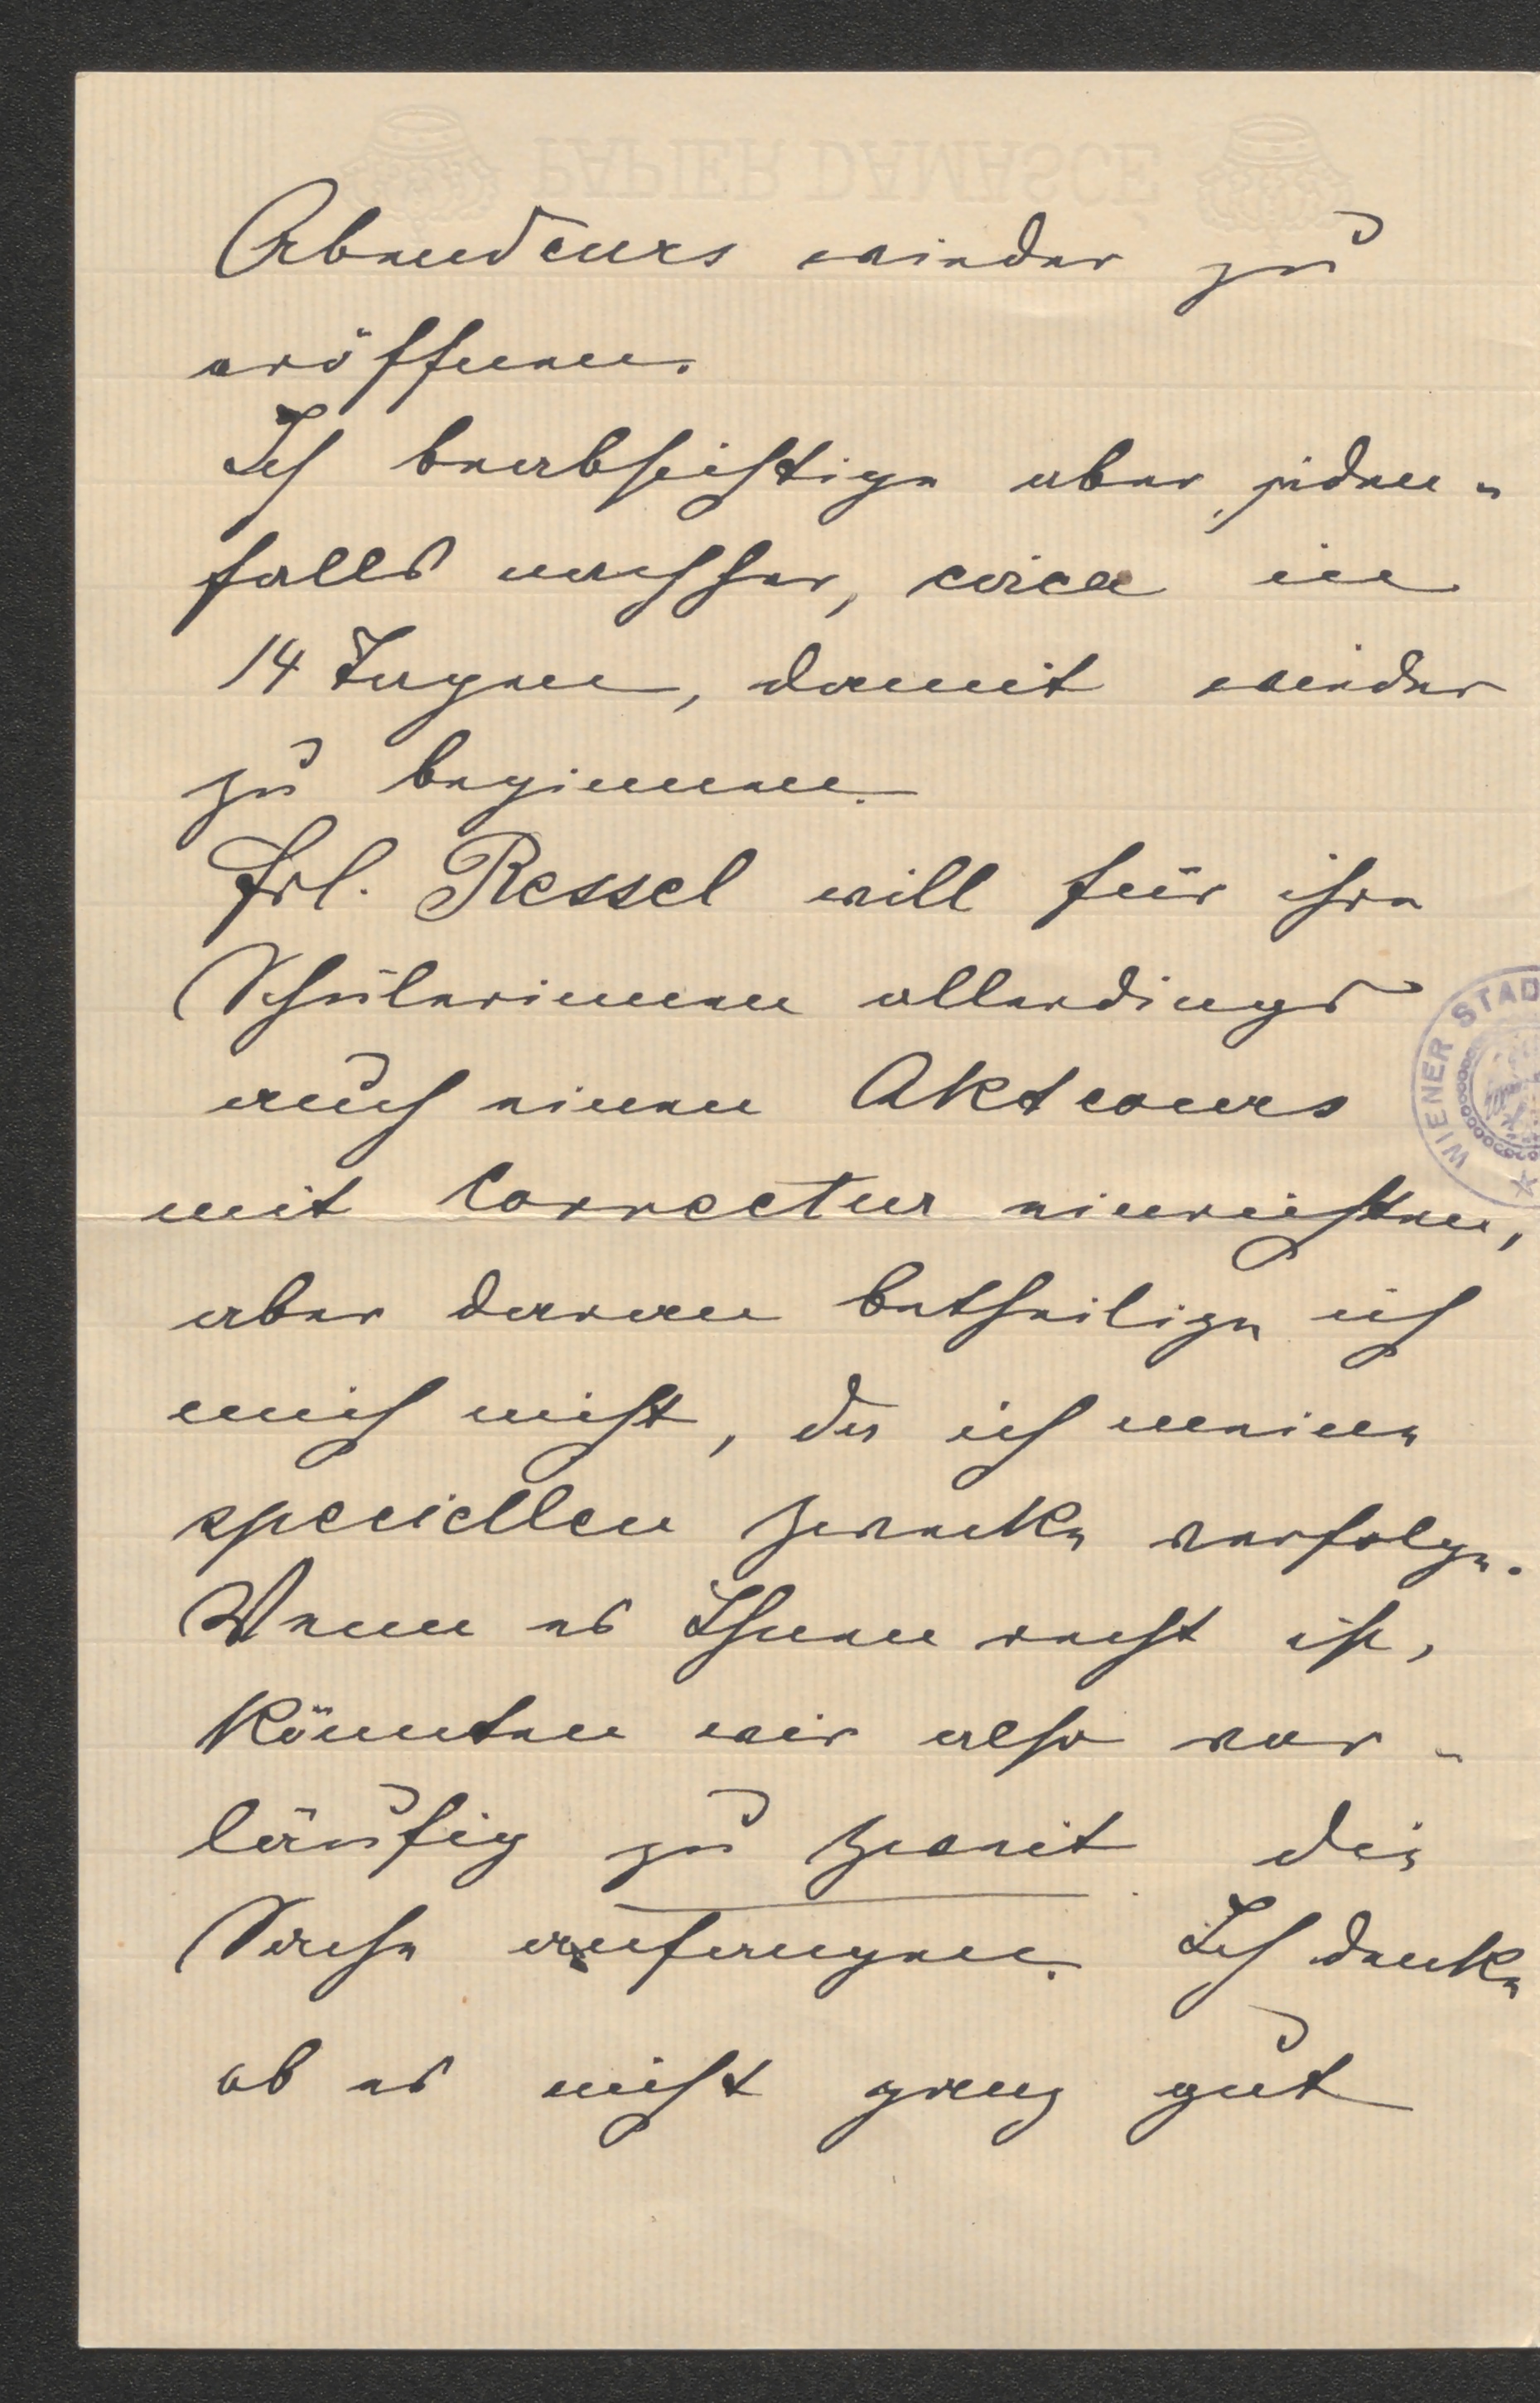 PAPIER DAMASCÉ
Abendcurs wieder zu
eröffnen.
Ich beabsichtige aber jeden-
falls nachher, circa in
14 Tagen, damit wieder
zu beginnen.
Frl. Ressel will für ihre
Schülerinnen allerdings
auch einen Aktcours
mit Correctur einrichten,
aber daran betheilige ich
mich nicht, da ich meine
speciellen Zwecke verfolge.
Wenn es Ihnen recht ist,
könnten wir also vor-
läufig zu zweit die
Sache anfangen. Ich denke
ob es nicht ganz gut
WIENER STAD